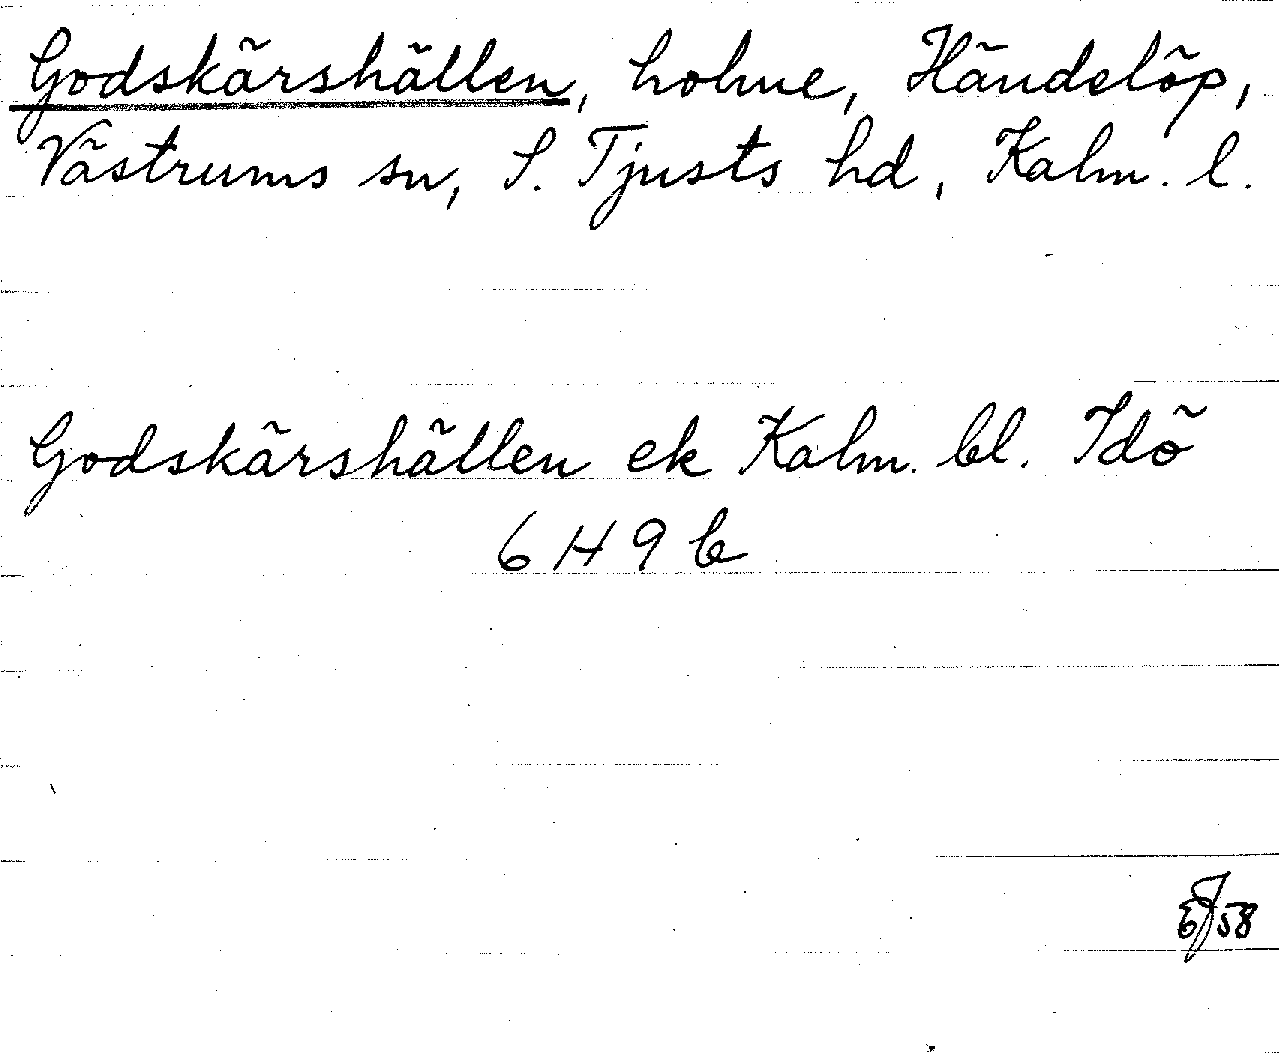 Godskärshällen, holme, Händelöp,
Västrums sn, S. Tjusts hd, Kalm. l.
Godskärshällen ek Kalm. bl. Idö
6 H 9 b